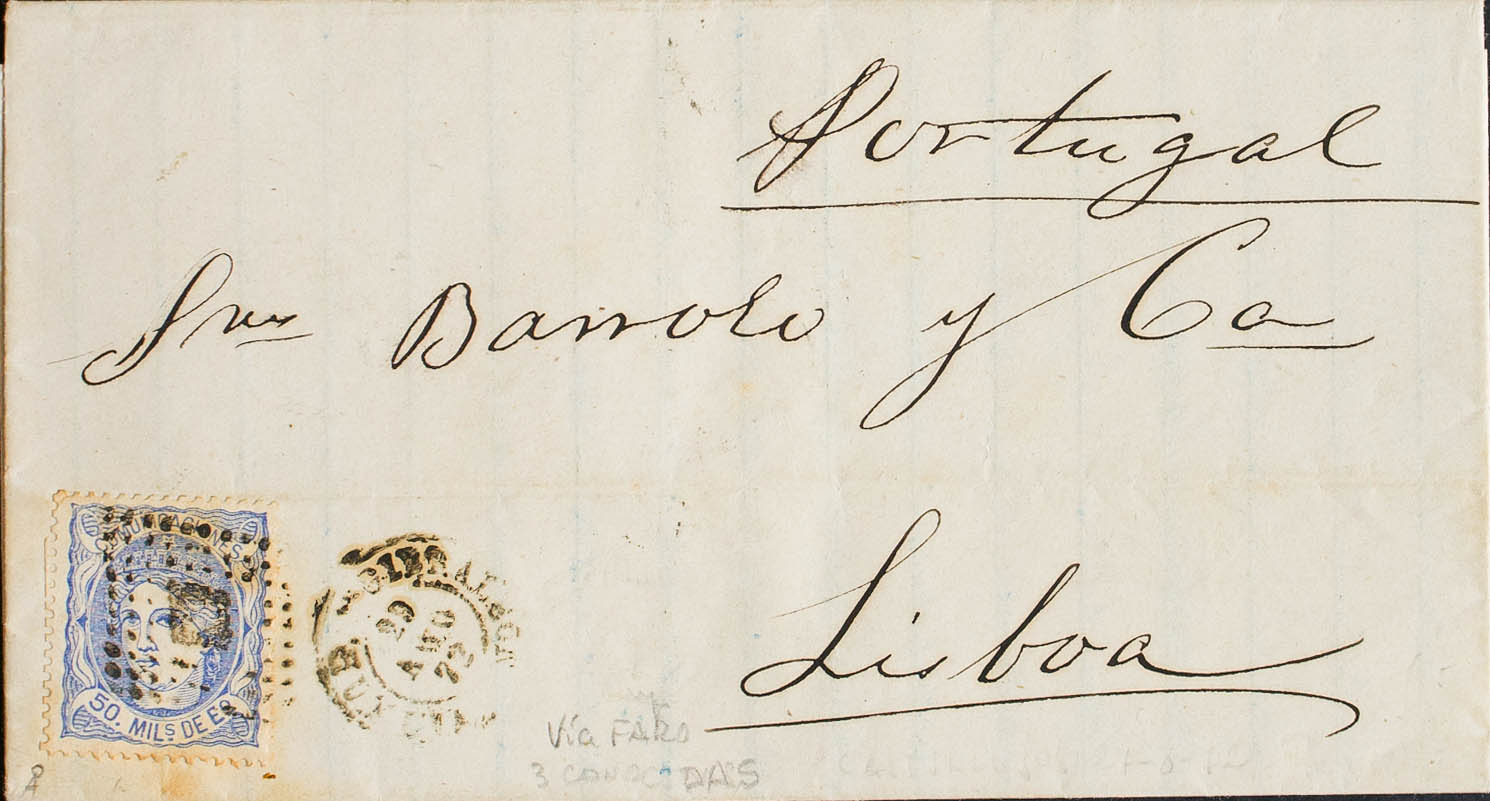 Portugal
Sres Barrolo y Ca
Lisboa
COMUNICACIONES
50. MILS DE ES
29
AGO
72
Vía FARO
3 CONOCIDAS